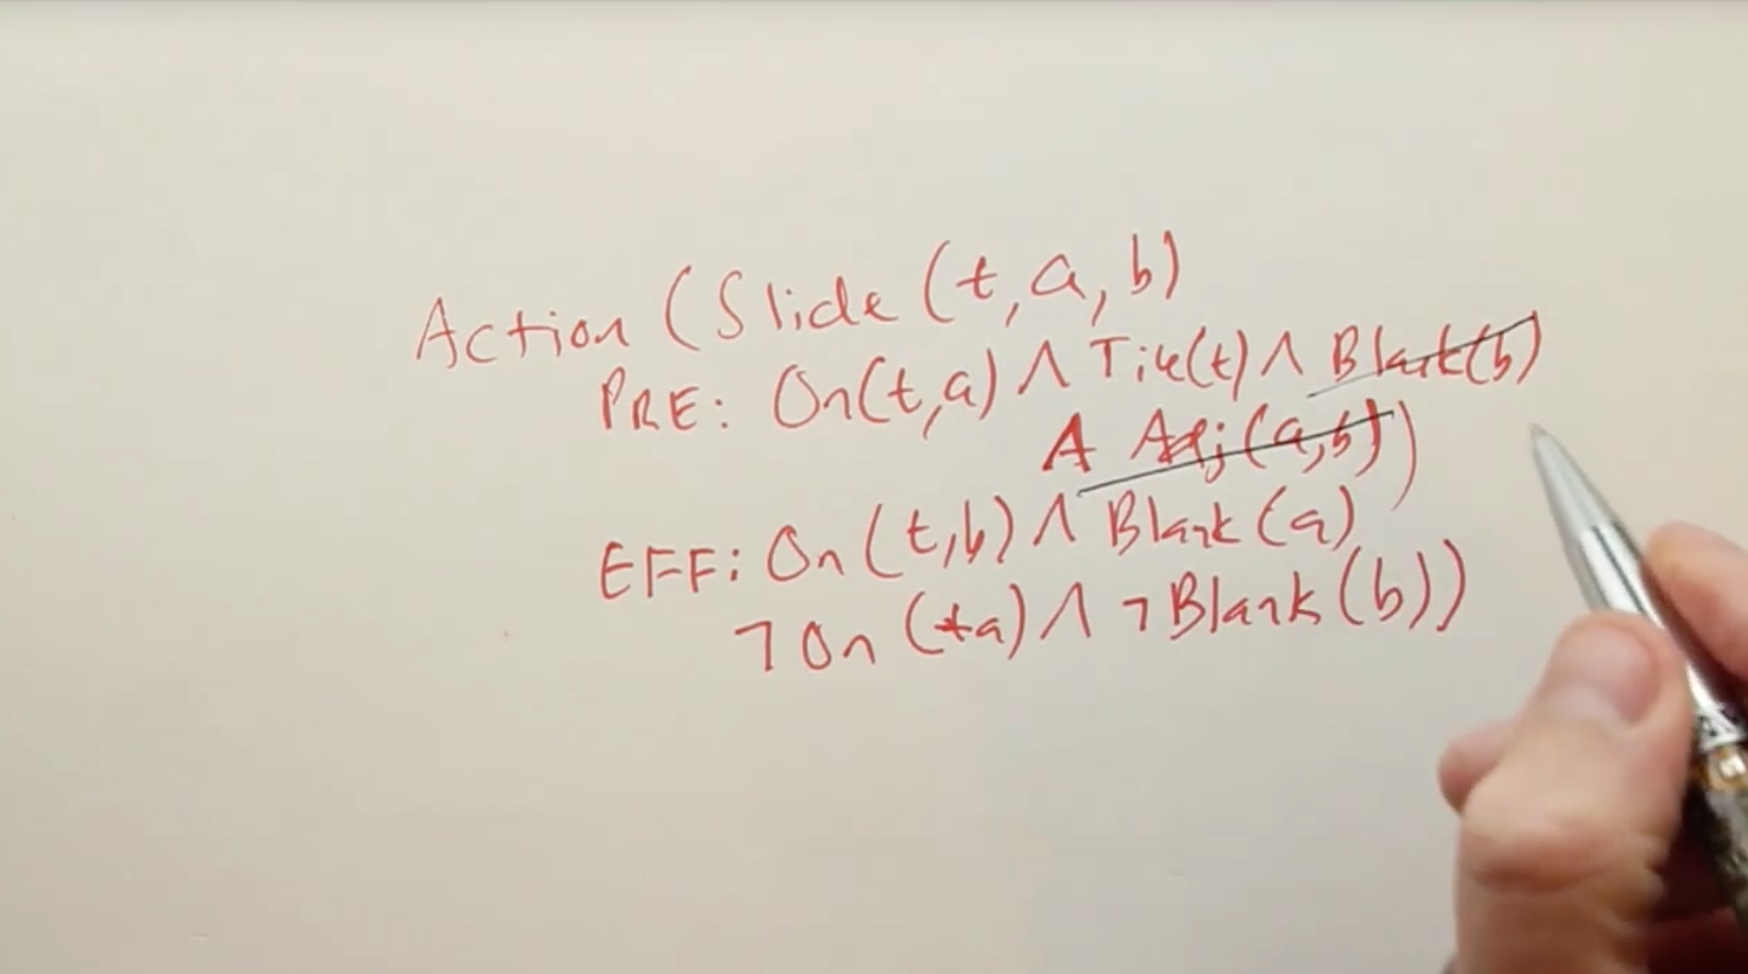 Action (Slide (t, a, b)
PRE: On(t,a) ∧ Tile(t) ∧ Blank(b)
∧ Adj(a,b))
EFF: On(t,b) ∧ Blank(a)
¬On(t,a) ∧ ¬Blank(b))